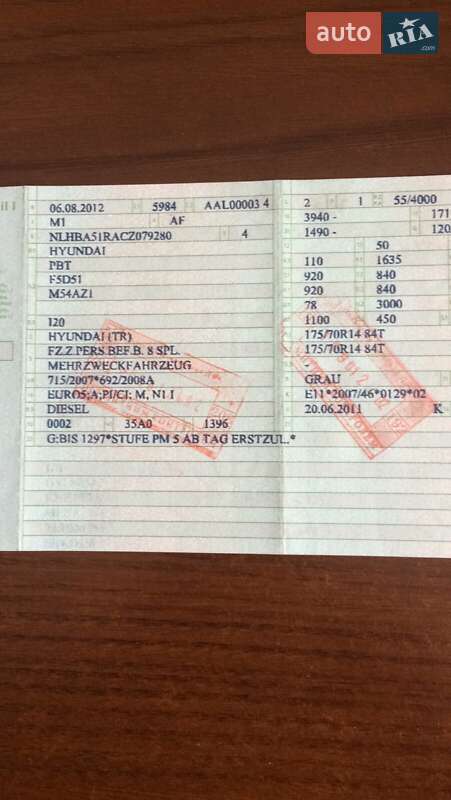 auto RIA.com
06.08.2012 5984 AAL00003 4
M1 AF
NLHBA51RACZ079280 4
HYUNDAI
PBT
F5D51
M54AZ1
120
HYUNDAI (TR)
FZ.Z.PERS.BEF.B. 8 SPL.
MEHRZWECKFAHRZEUG
715/2007*692/2008A
EURO5;A;PI/CI; M, N1 I
DIESEL
0002 35A0 1396
G:BIS 1297*STUFE PM 5 AB TAG ERSTZUL.*
2 1 55/4000
3940 - 171
1490 - 120
50
110 1635
920 840
920 840
78 3000
1100 450
175/70R14 84T
175/70R14 84T
-
GRAU
E11*2007/46*0129*02
20.06.2011 K